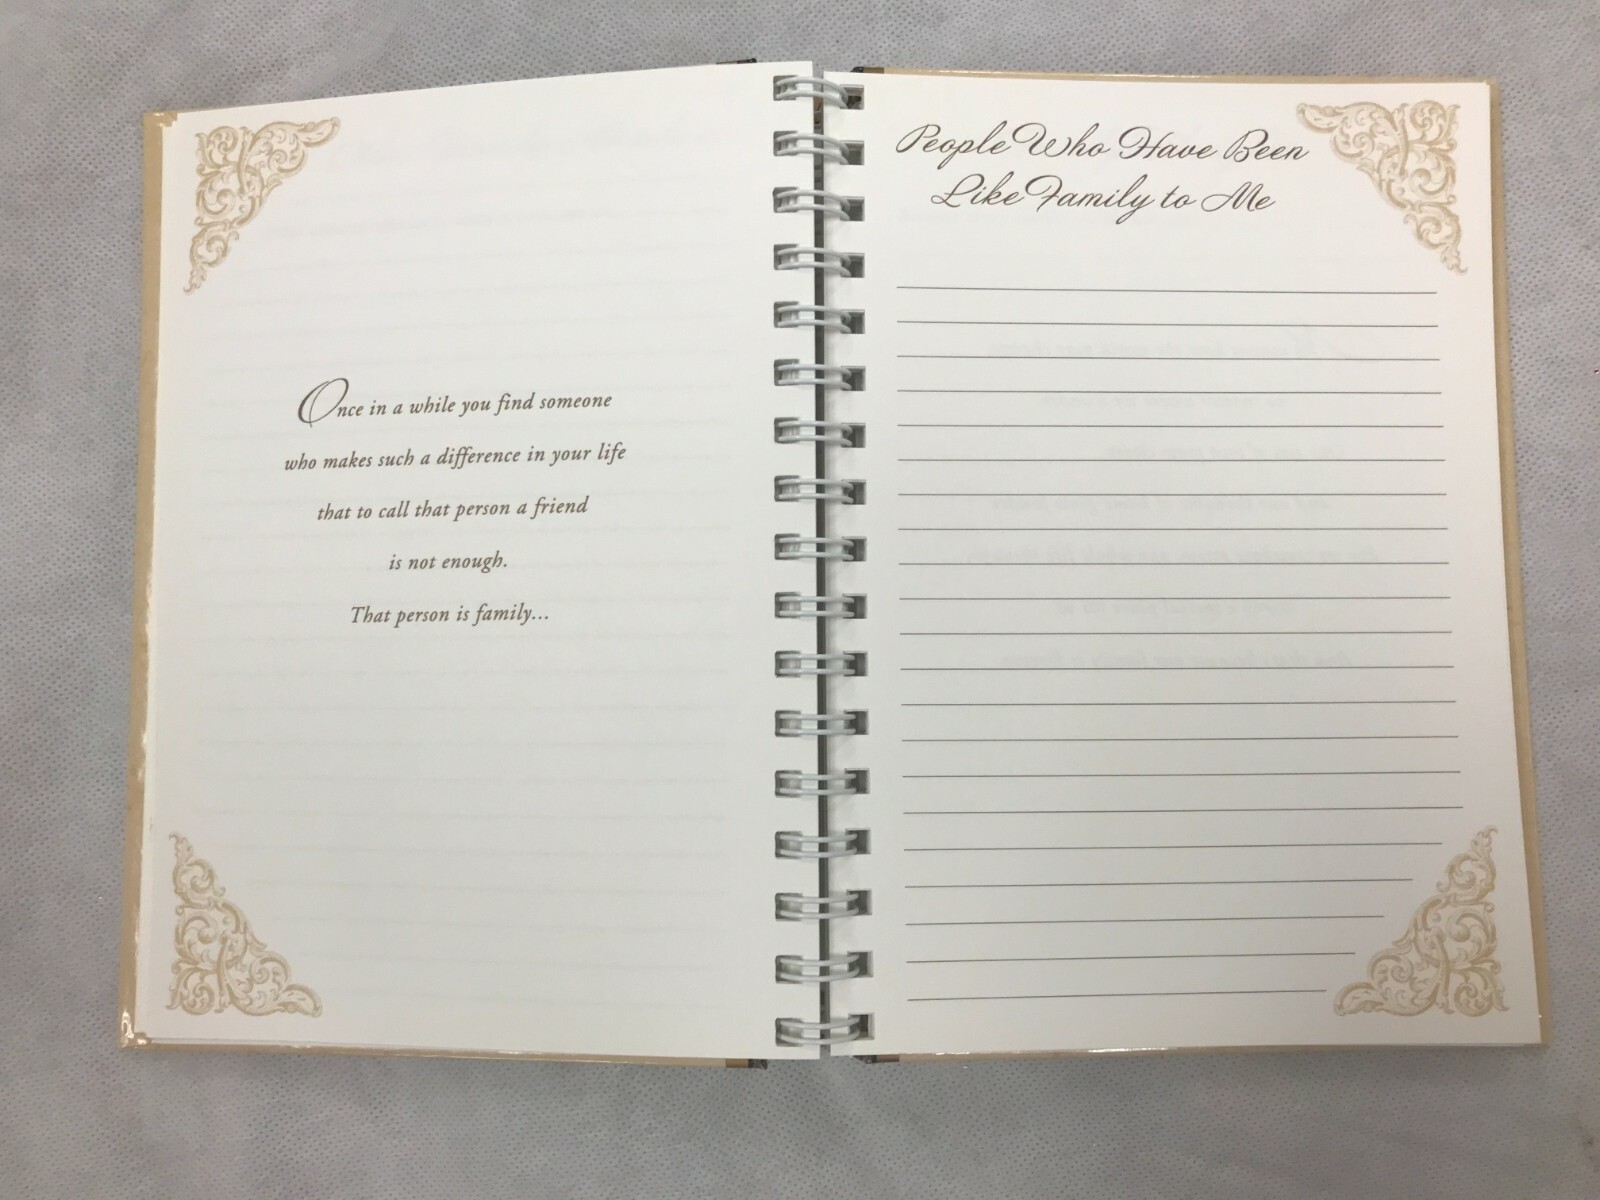 Once in a while you find someone
who makes such a difference in your life
that to call that person a friend
is not enough.
That person is family...
People Who Have Been
Like Family to Me